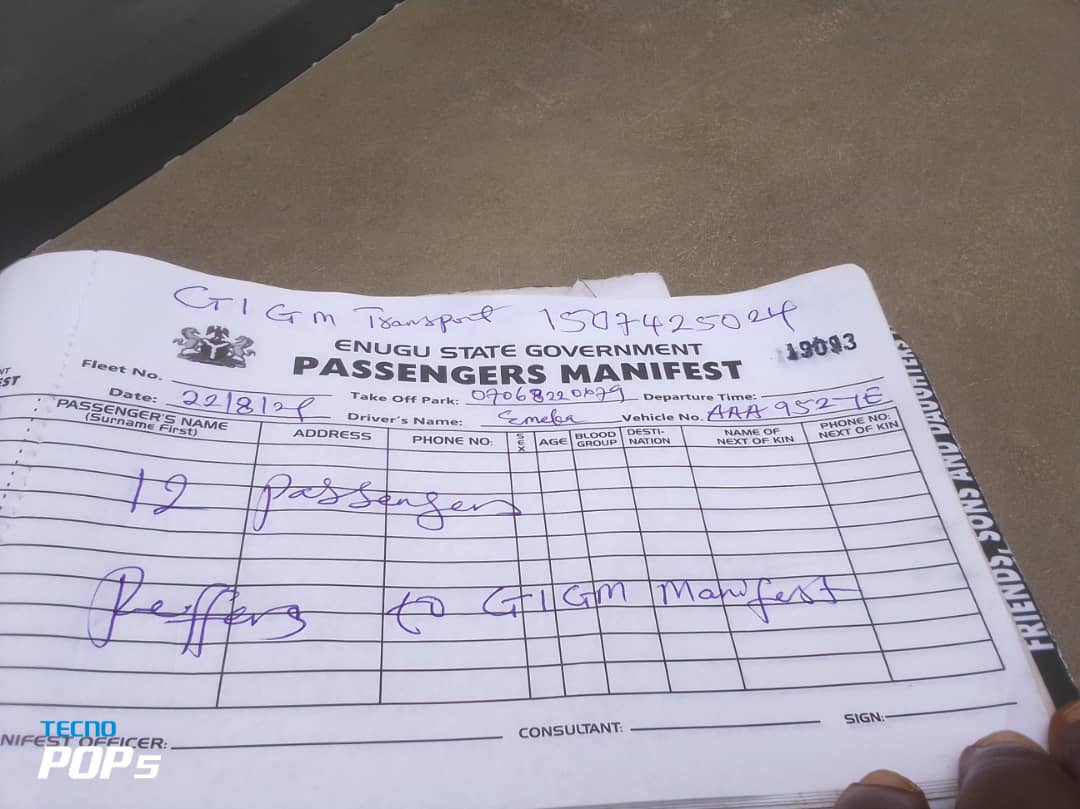 GIGM Transport 1507425024
ENUGU STATE GOVERNMENT
19093
PASSENGERS MANIFEST
Fleet No.
Take Off Park: 07068220679
Departure Time:
Date: 22/8/24
Driver's Name: Emeka
Vehicle No. AAA 952 YE
PASSENGER'S NAME
(Surname First)
ADDRESS
PHONE NO:
SEX
AGE
BLOOD
GROUP
DESTI-
NATION
NAME OF
NEXT OF KIN
PHONE NO:
NEXT OF KIN
12 passengers
Reffers to GIGM Manifest
NIFEST OFFICER:
CONSULTANT:
SIGN:
FRIENDS, SONS AND
TECNO
POP5